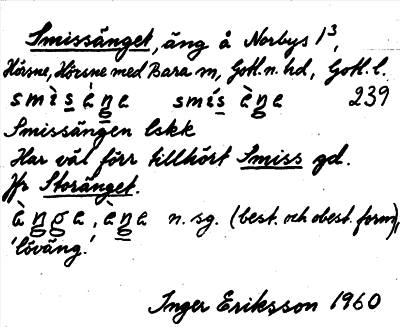 Smissänget, äng å Norbys 1³,
Hörsne, Hörsne med Bara sn, Gotl. n. hd, Gotl. l.
smìsàŋe smísàŋe 239
Smissängen lskk
Har väl förr tillhört Smiss gd.
Jfr Storänget.
àŋga, àŋe n. sg. (best. och obest. form),
'löväng.'
Inger Eriksson 1960